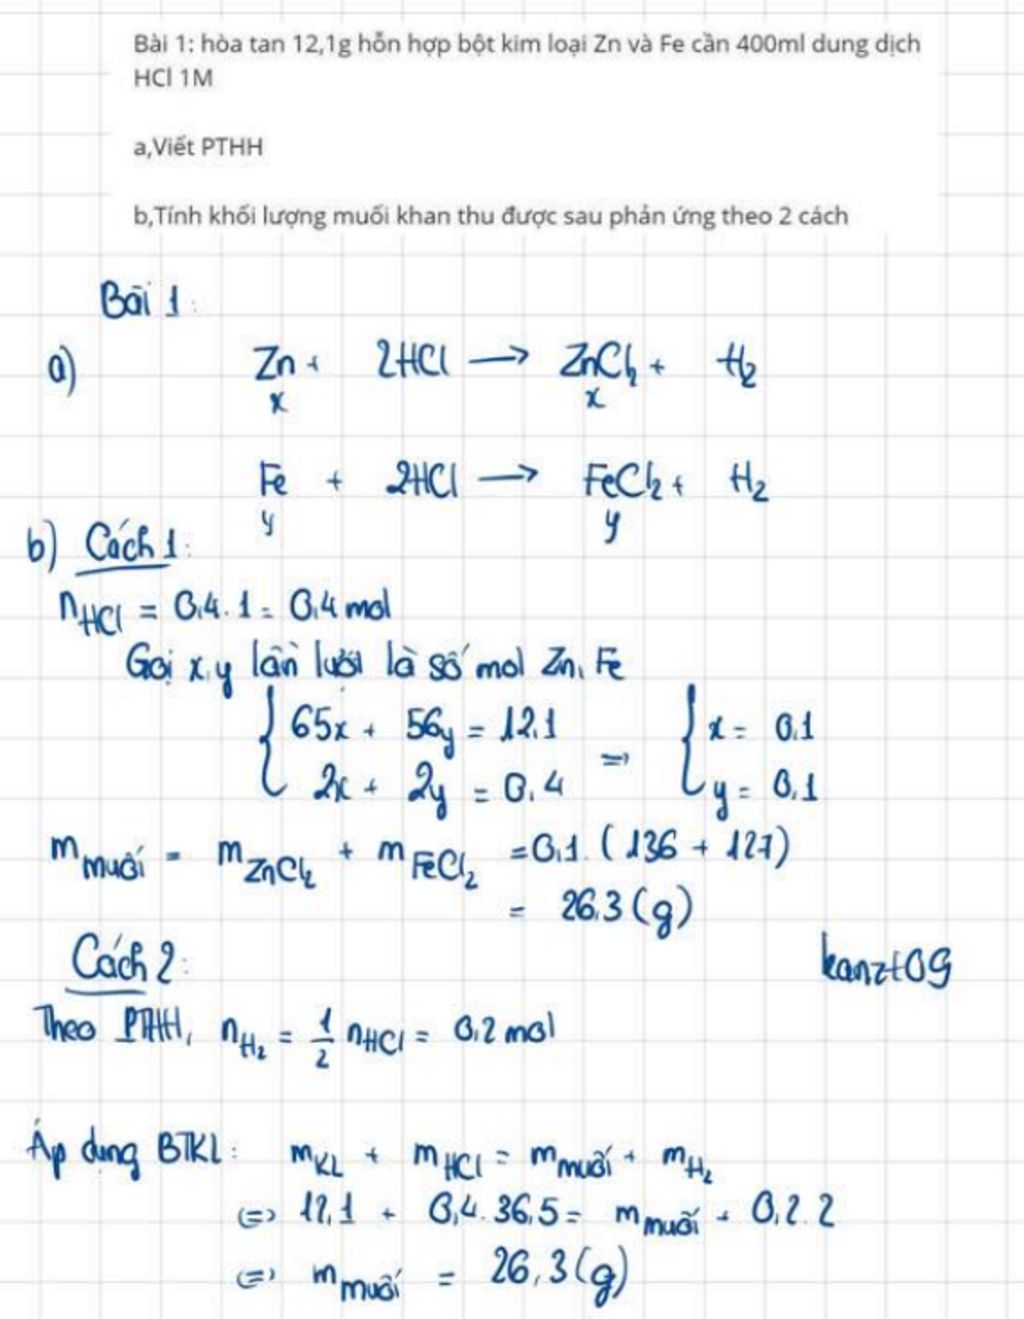 Bài 1: hòa tan 12,1g hỗn hợp bột kim loại Zn và Fe cần 400ml dung dịch
HCl 1M
a,Viết PTHH
b,Tính khối lượng muối khan thu được sau phản ứng theo 2 cách
Bài 1:
a) Zn + 2HCl → ZnCl₂ + H₂
x x
Fe + 2HCl → FeCl₂ + H₂
y y
b) Cách 1:
nHCl = 0,4.1 = 0,4 mol
Gọi x,y lần lượt là số mol Zn, Fe
65x + 56y = 12,1 => x = 0,1
2x + 2y = 0,4 y = 0,1
m muối = m ZnCl₂ + m FeCl₂ = 0,1.(136 + 127)
= 26,3 (g)
Cách 2:
kanzt09
Theo PTHH, nH₂ = 1/2 nHCl = 0,2 mol
Áp dụng BTKL: mKL + mHCl = m muối + mH₂
<=> 12,1 + 0,4.36,5 = m muối + 0,2.2
<=> m muối = 26,3 (g)